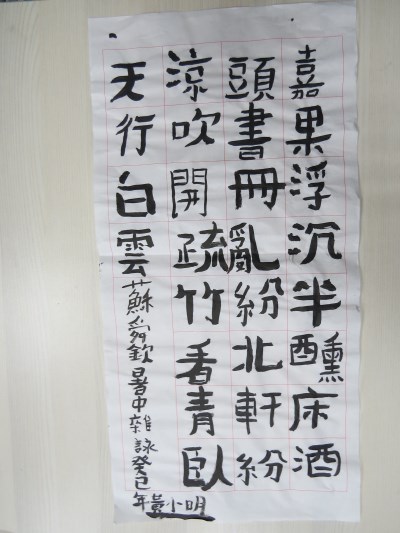 嘉果浮沉半醺床酒
頭書冊亂紛北軒紛
涼吹開疏竹看青臥
天行白雲蘇舜欽暑中雜詠癸巳年黃小明